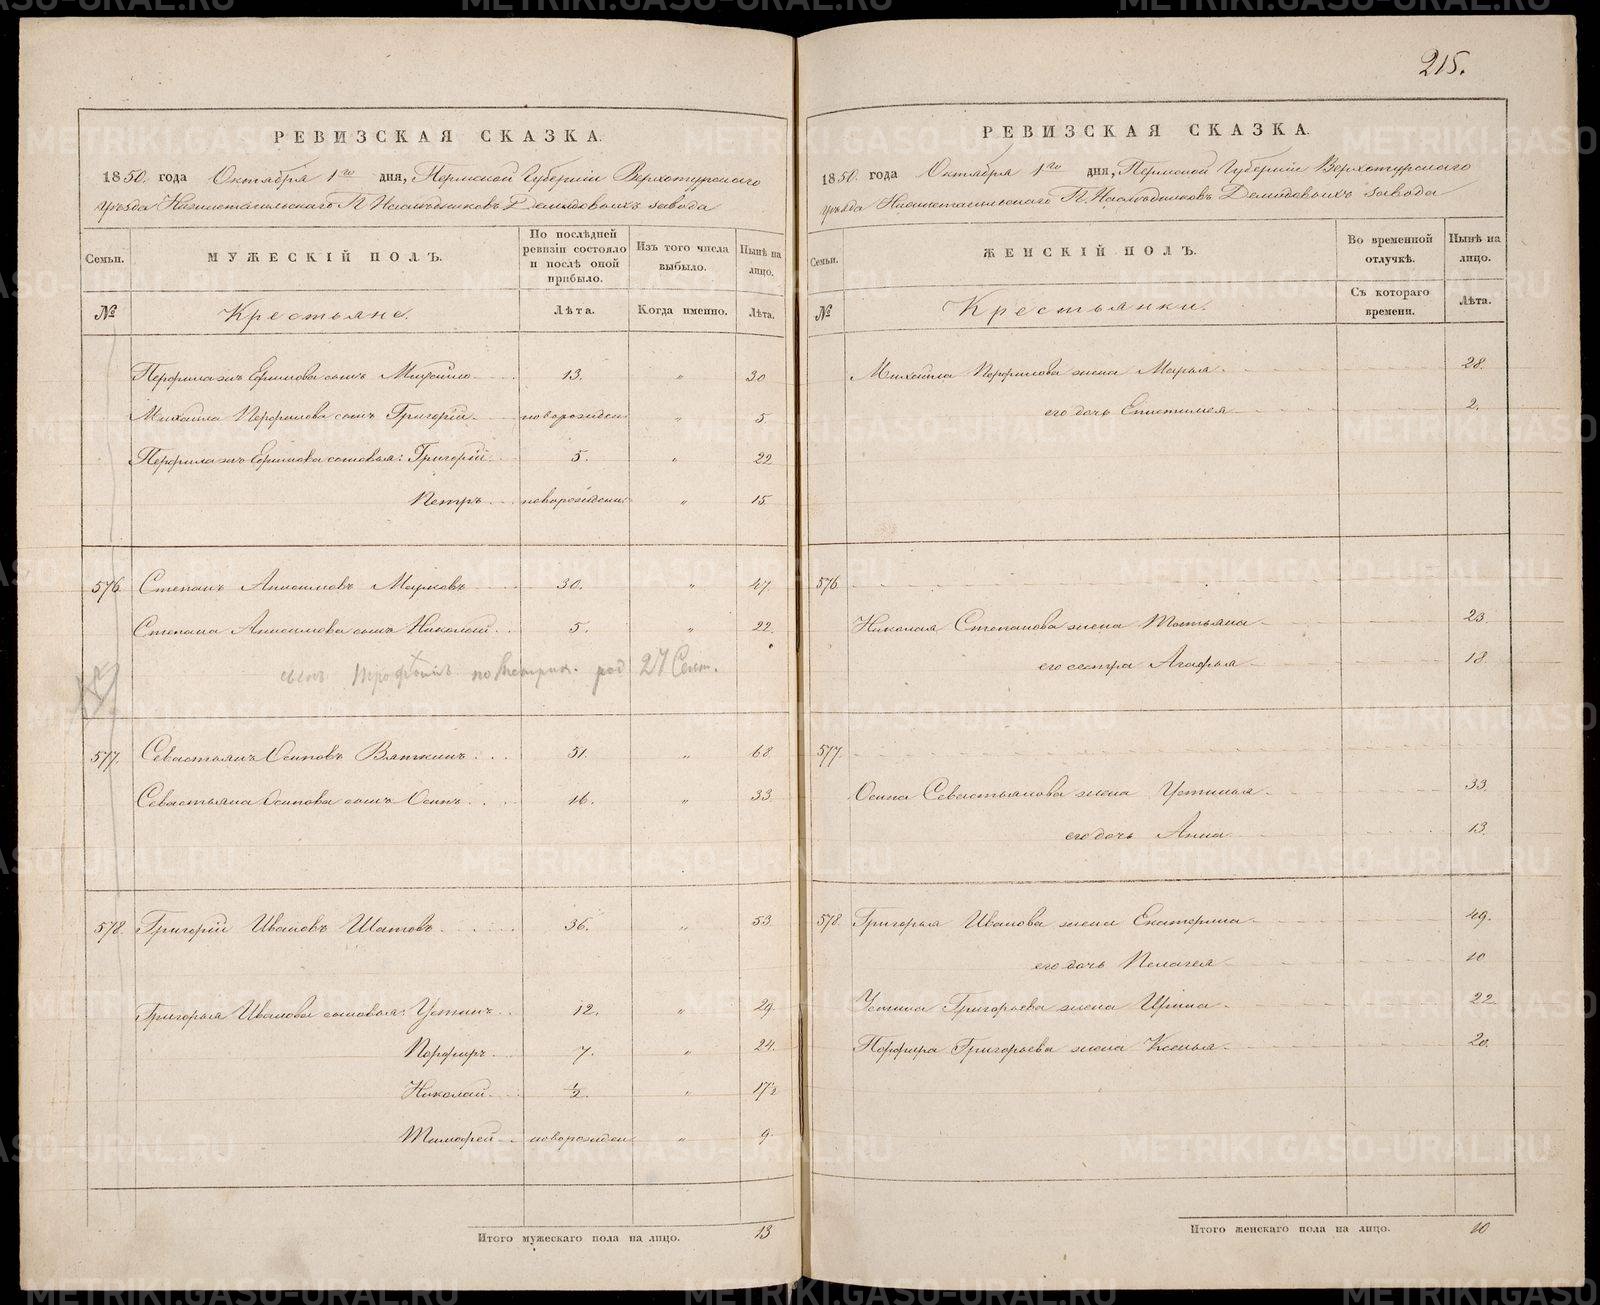 215.
РЕВИЗСКАЯ СКАЗКА.
1850. года Октября 1го дня, Пермской Губерніи Верхотурскаго
Уѣзда Нижнетагильскаго П. Наслѣдниковъ Демидовыхъ завода
Семьи. МУЖЕСКІЙ ПОЛЪ. По послѣдней ревизіи состояло и послѣ оной прибыло. Изъ того числа выбыло. Нынѣ на лицо.
№ Крестьяне. Лѣта. Когда именно. Лѣта.
Ефимова сынъ Михайло 13. " 30
Михаила Перфилова сынъ Григорій новорожден " 5
Ефимова сыновья: Григорій 5. " 22
Петръ новорожден " 15
576. Степанъ Анисимовъ Марковъ 30. " 47.
Степана Анисимова сынъ Николай 5. " 22.
сынъ по метрик. род 27 Сент.
577. Севастьянъ Осиповъ Вяткинъ 51. " 68
Севастьяна Осипова сынъ Осипъ 16. " 33.
578. Григорій Ивановъ Шатовъ 36. " 53
Григорья Иванова сыновья: Устинъ 12. " 29
Порфиръ 7. " 24.
Николай ½. " 17½
Тимофей новорожден " 9
Итого мужескаго пола на лицо. 13
РЕВИЗСКАЯ СКАЗКА.
1850. года Октября 1го дня, Пермской Губерніи Верхотурскаго
Уѣзда Нижнетагильскаго П. Наслѣдниковъ Демидовыхъ завода
Семьи. ЖЕНСКІЙ ПОЛЪ. Во временной отлучкѣ. Нынѣ на лицо.
№ Крестьянки. Съ котораго времени. Лѣта.
Михаила Перфилова жена Марья 28.
его дочь Епистимея 2.
576.
Николая Степанова жена Татьяна 23.
его сестра Агафья 18
577.
Осипа Севастьянова жена Устинья 33.
его дочь Анна 13.
578. Григорья Иванова жена Екатерина 49.
его дочь Пелагея 10
Устина Григорьева жена Ирина 22.
Порфира Григорьева жена Ксенья 20.
Итого женскаго пола на лицо. 10
METRIKI.GASO-URAL.RU